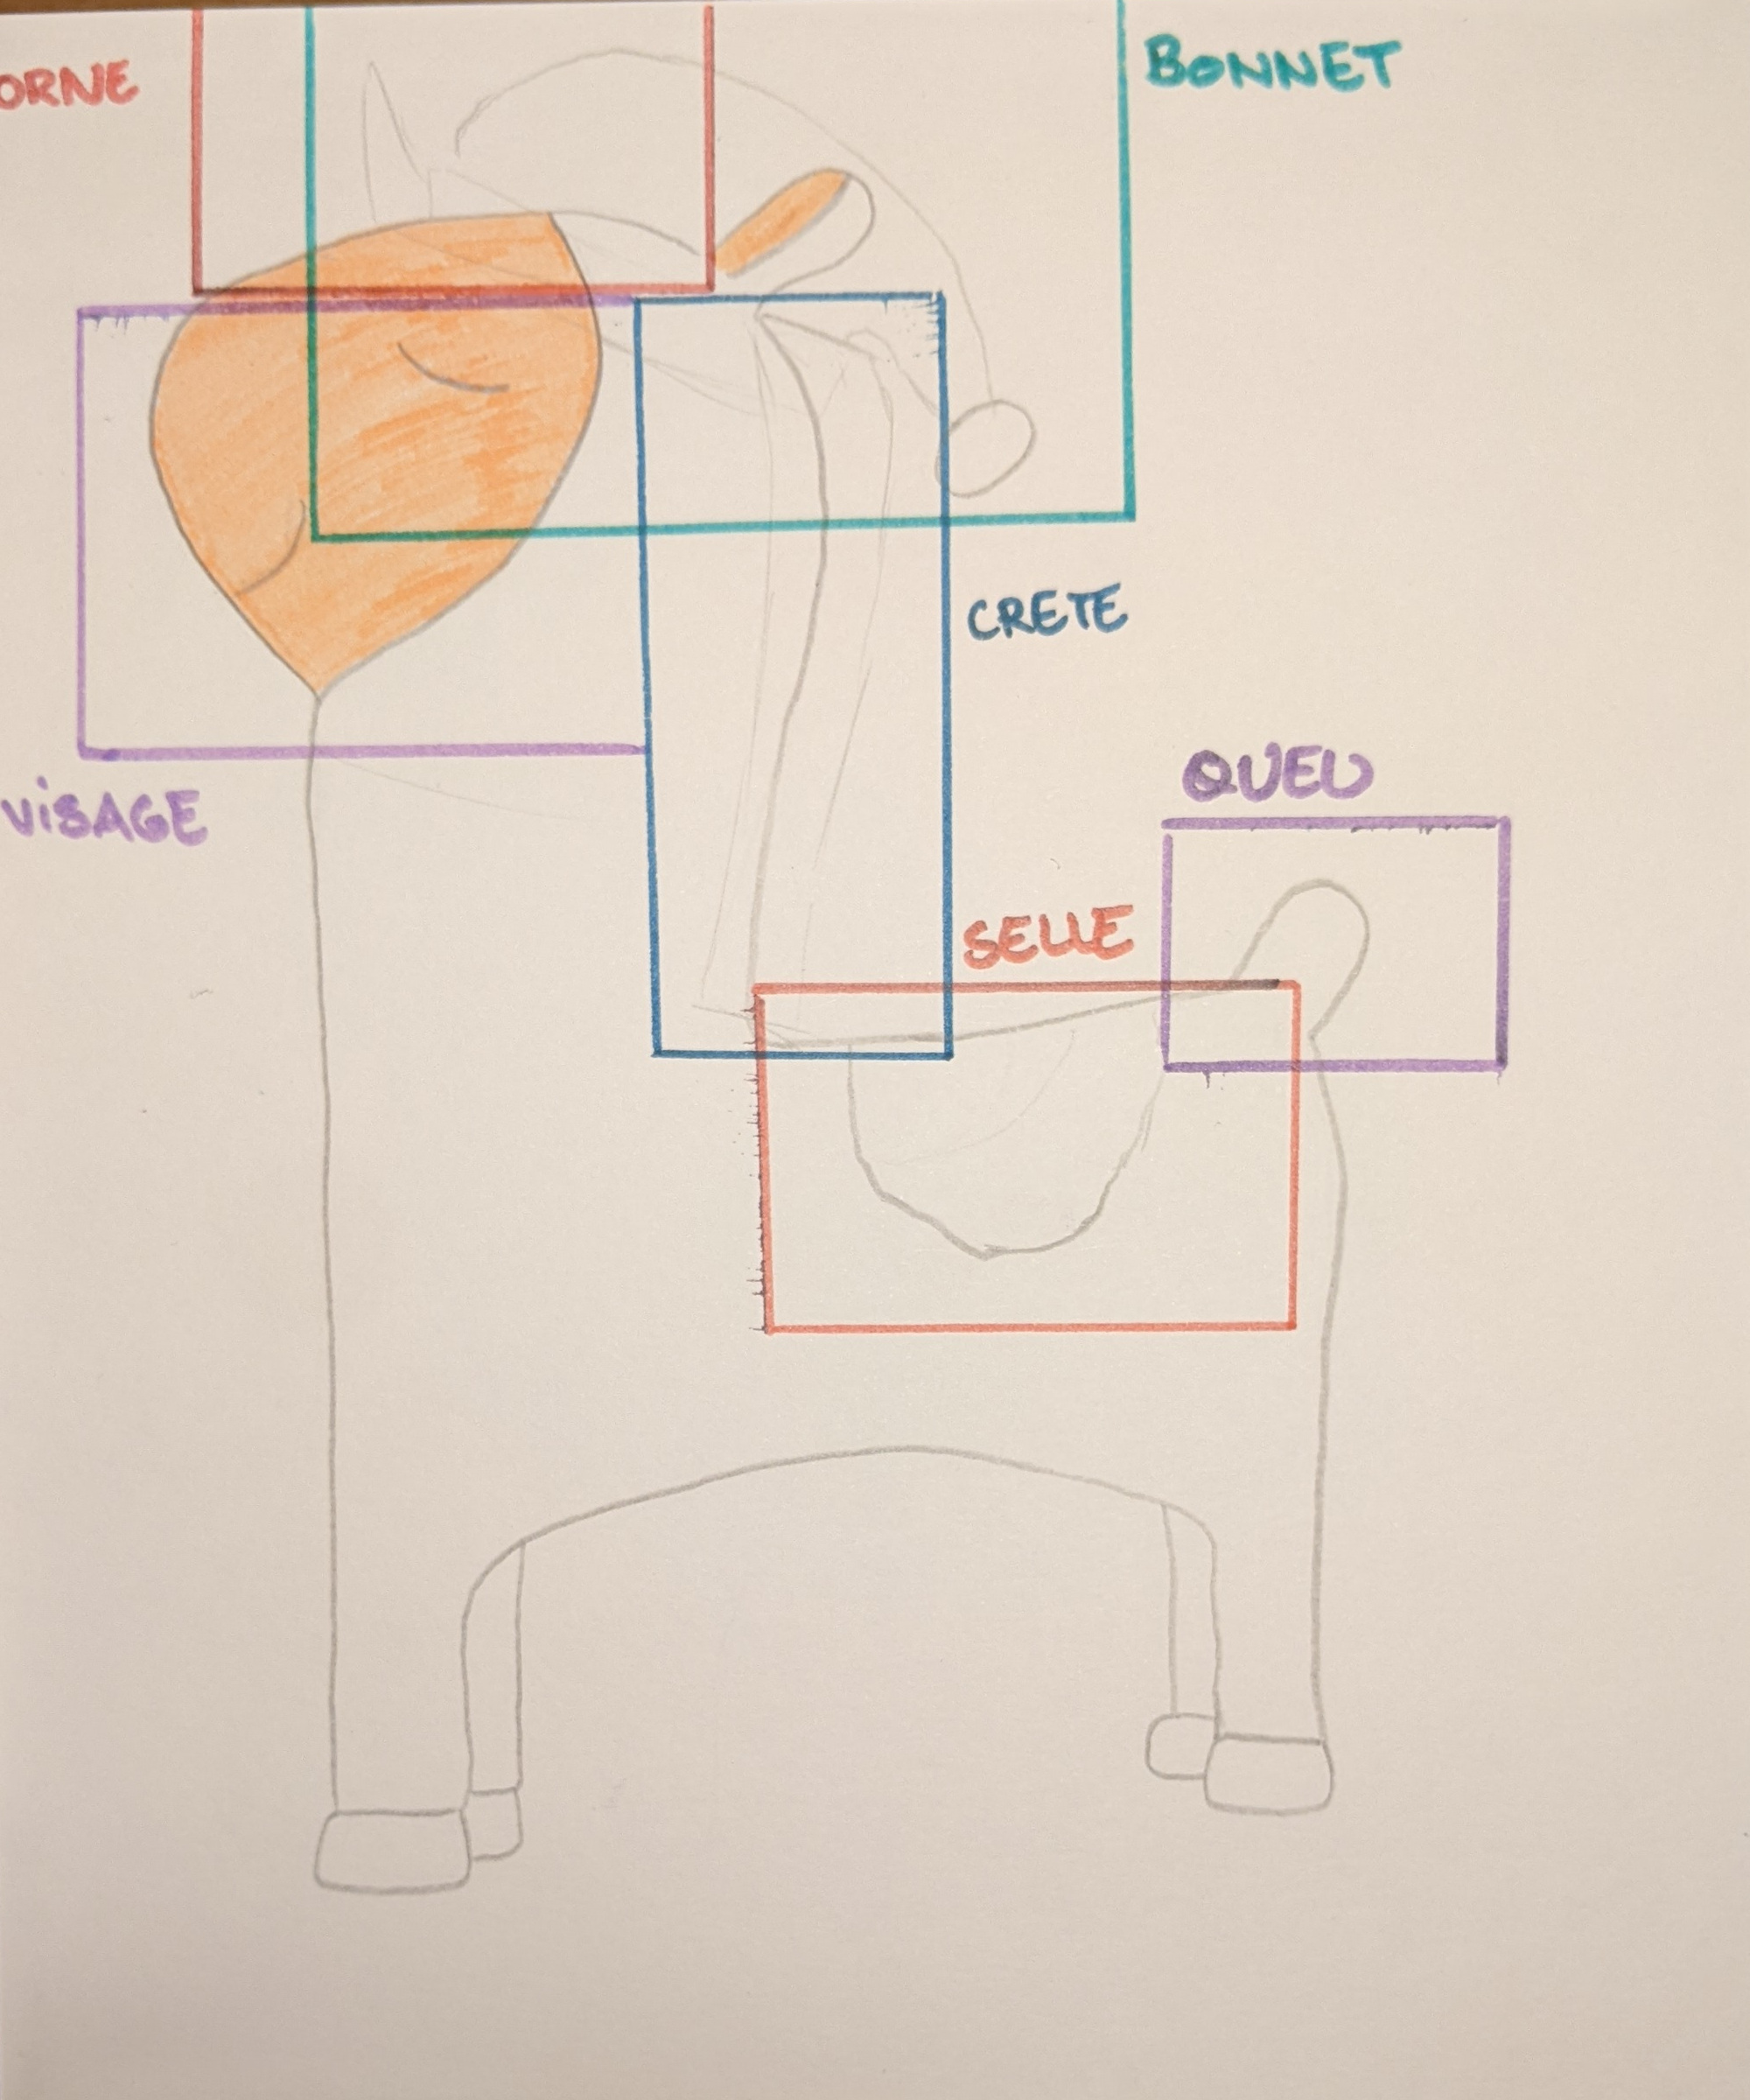 ORNE
BONNET
CRETE
VISAGE
QUEU
SELLE